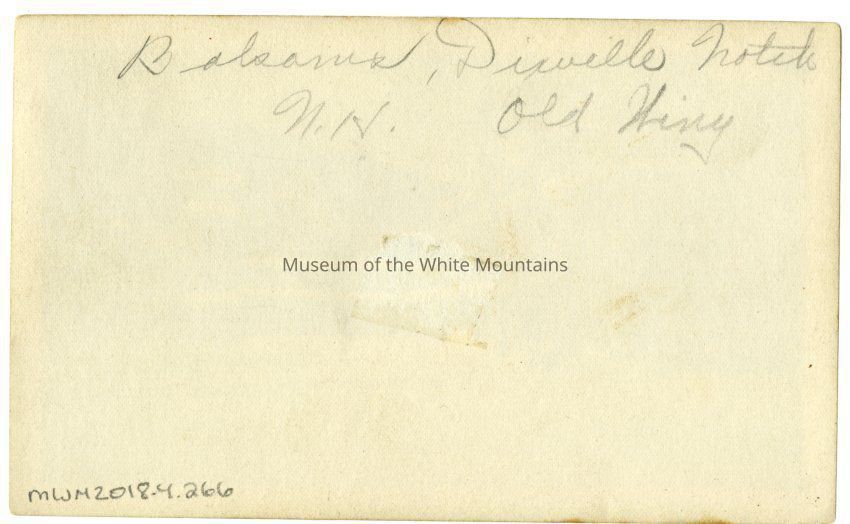 Balsams, Dixville Notch
N.H. Old Wing
Museum of the White Mountains
MWM2018.4.266